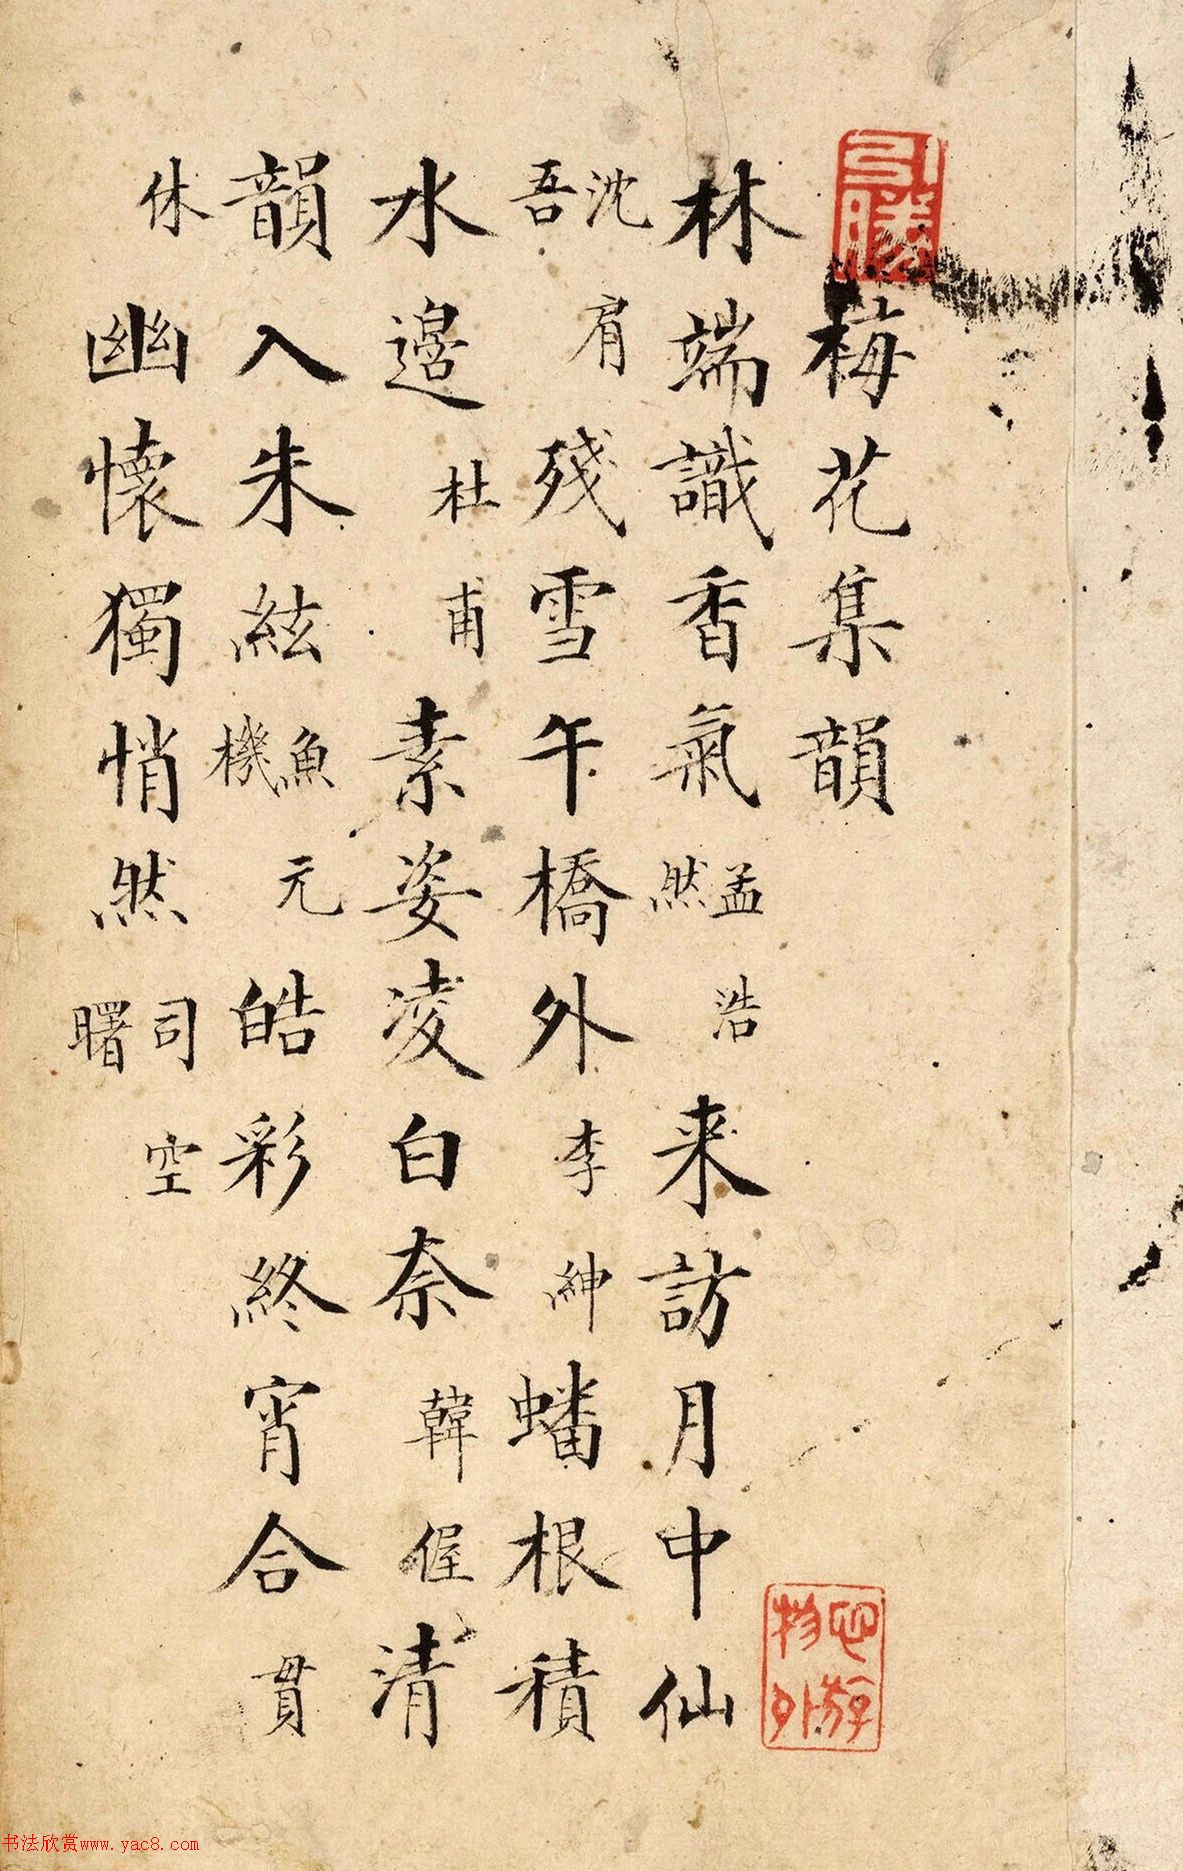 引勝
梅花集韻
林端識香氣孟浩然来訪月中仙
沈肩吾殘雪午橋外李紳蟠根積
水邉杜甫素姿凌白奈韓偓清
韻入朱絃魚元機皓彩終宵合貫
休幽懷獨悄然司空曙
心游物外
书法欣赏www.yac8.com